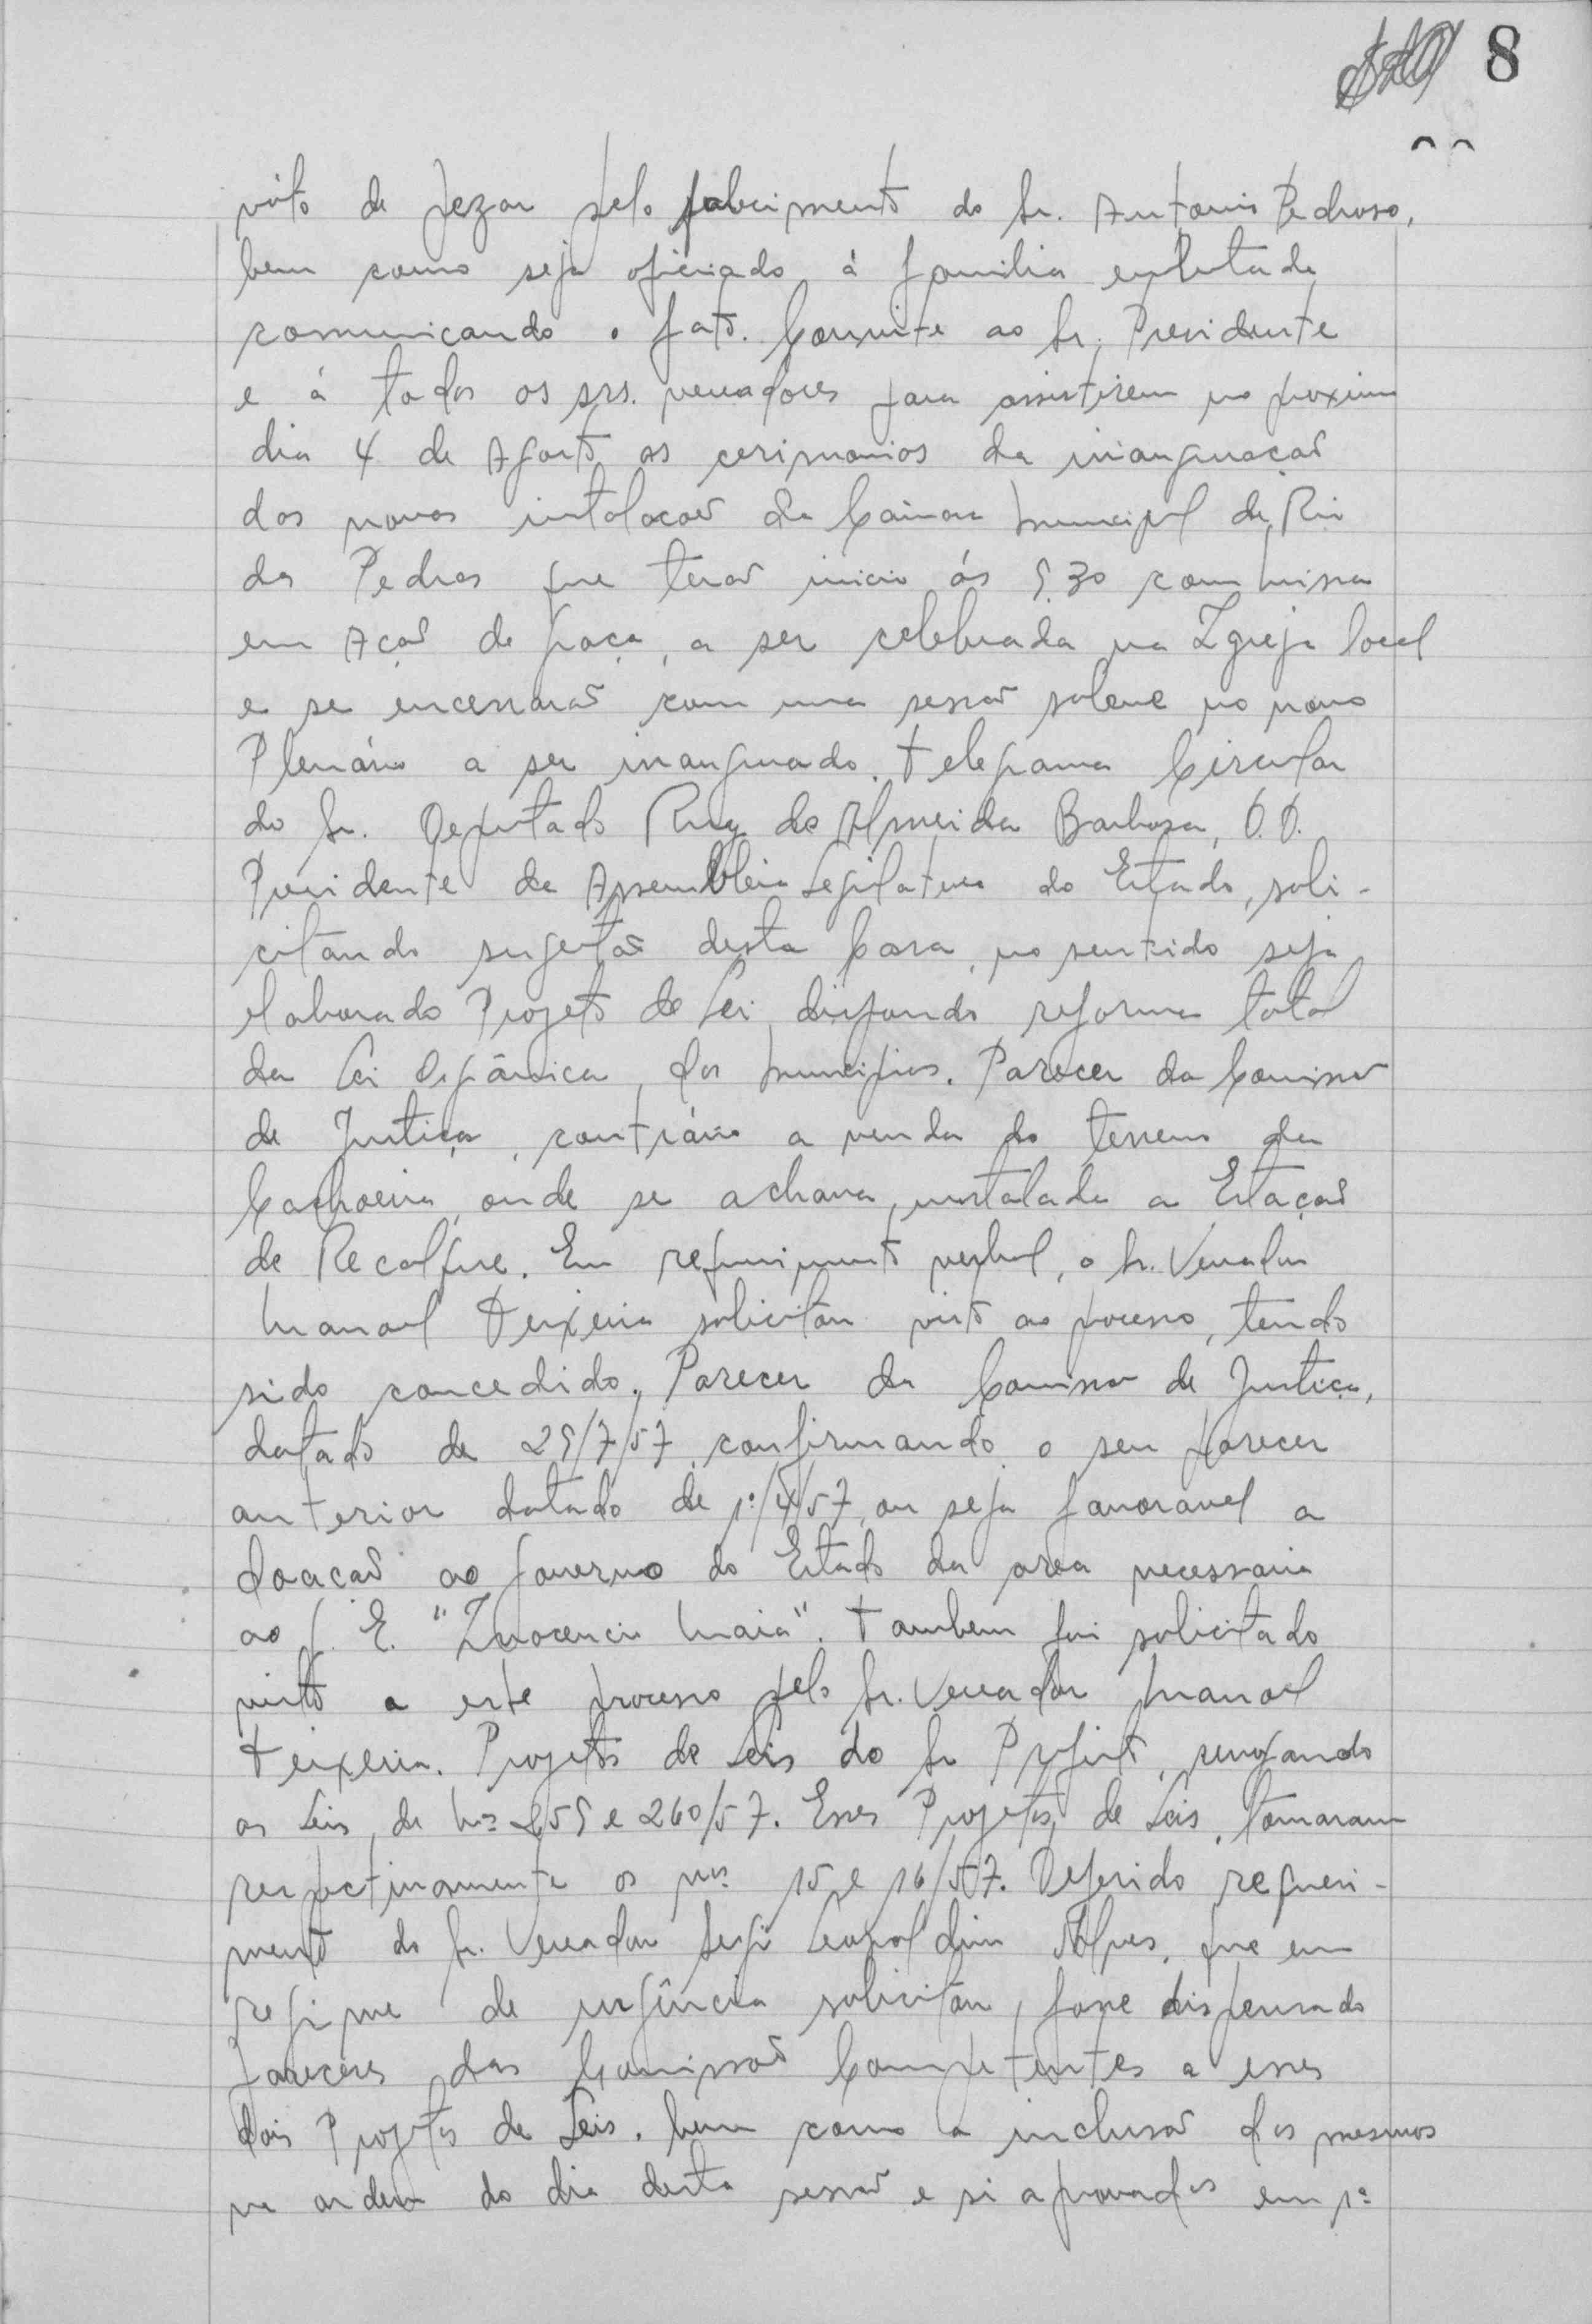 8
vóto de pezar pelo falecimento do Sr. Antonio Pedroso,
bem como seja oficiado á familia enlutada
comunicando o fato. Convite ao Sr. Presidente
e á todos os srs. vereadores para assistirem no proximo
dia 4 de Agosto as cerimonias da inauguração
das novas instalações da Câmara Municipal de Rio
das Pedras que terão inicio ás 9.30 com missa
em Ação de Graça, a ser celebrada na Igreja local
e se encerrará com uma sessão solene no novo
Plenário a ser inaugurado. Telegrama Circular
do Sr. Deputado Ruy de Almeida Barbosa, D.D.
Presidente da Assembleia Legislativa do Estado, soli-
citando sugestão desta Casa, no sentido seja
elaborado Projeto de Lei dispondo reforma total
da Lei Orgânica dos Municipios. Parecer da Comissão
de Justiça, contrário a venda do terreno da
Cachoeira, onde se achava instalada a Estação
de Recalque. Em requerimento verbal, o Sr. Vereador
Manoel Teixeira solicitou visto ao processo, tendo
sido concedido. Parecer da Comissão de Justiça,
datado de 29/7/57, confirmando o seu parecer
anterior datado de 1º/4/57, ou seja favoravel a
doação ao Governo do Estado da area necessaria
ao G. E. "Inocencio Maia". Tambem foi solicitado
visto a este processo pelo Sr. Vereador Manoel
Teixeira. Projetos de Leis do Sr Prefeito, revogando
as Leis, de Nºs 259 e 260/57. Esses Projetos de Leis, tomaram
respectivamente os nºs 15 e 16/57. Deferido requeri-
mento do Sr. Vereador Sergio Leopoldino Alves, que em
regime de urgência solicitou, fosse dispensado
parecêres das Comissões Competentes a esses
dois Projetos de Leis, bem como a inclusão dos mesmos
na ordem do dia desta sessão e si aprovados em 1ª